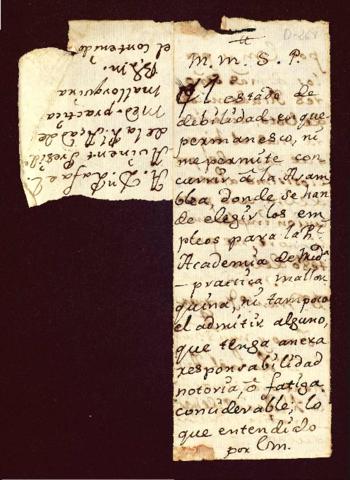 D-268
M. m. S. P.
El estado de
debilidad en que
permanesco, ni
me permite con
currir â la Asam
blea, donde se han
de elegir los em
pleos para la Rl.
Academia de Medª
-practica mallor
quina, ni tampoco
el admitir alguno,
que tenga anexa
responsabilidad
notoria, ô fatiga
conciderable; lo
que entendido
por Vm.
A. Dn.
de la Rl. Acad. de
Med. practica
mallorquina
B. L. M.
el contenido